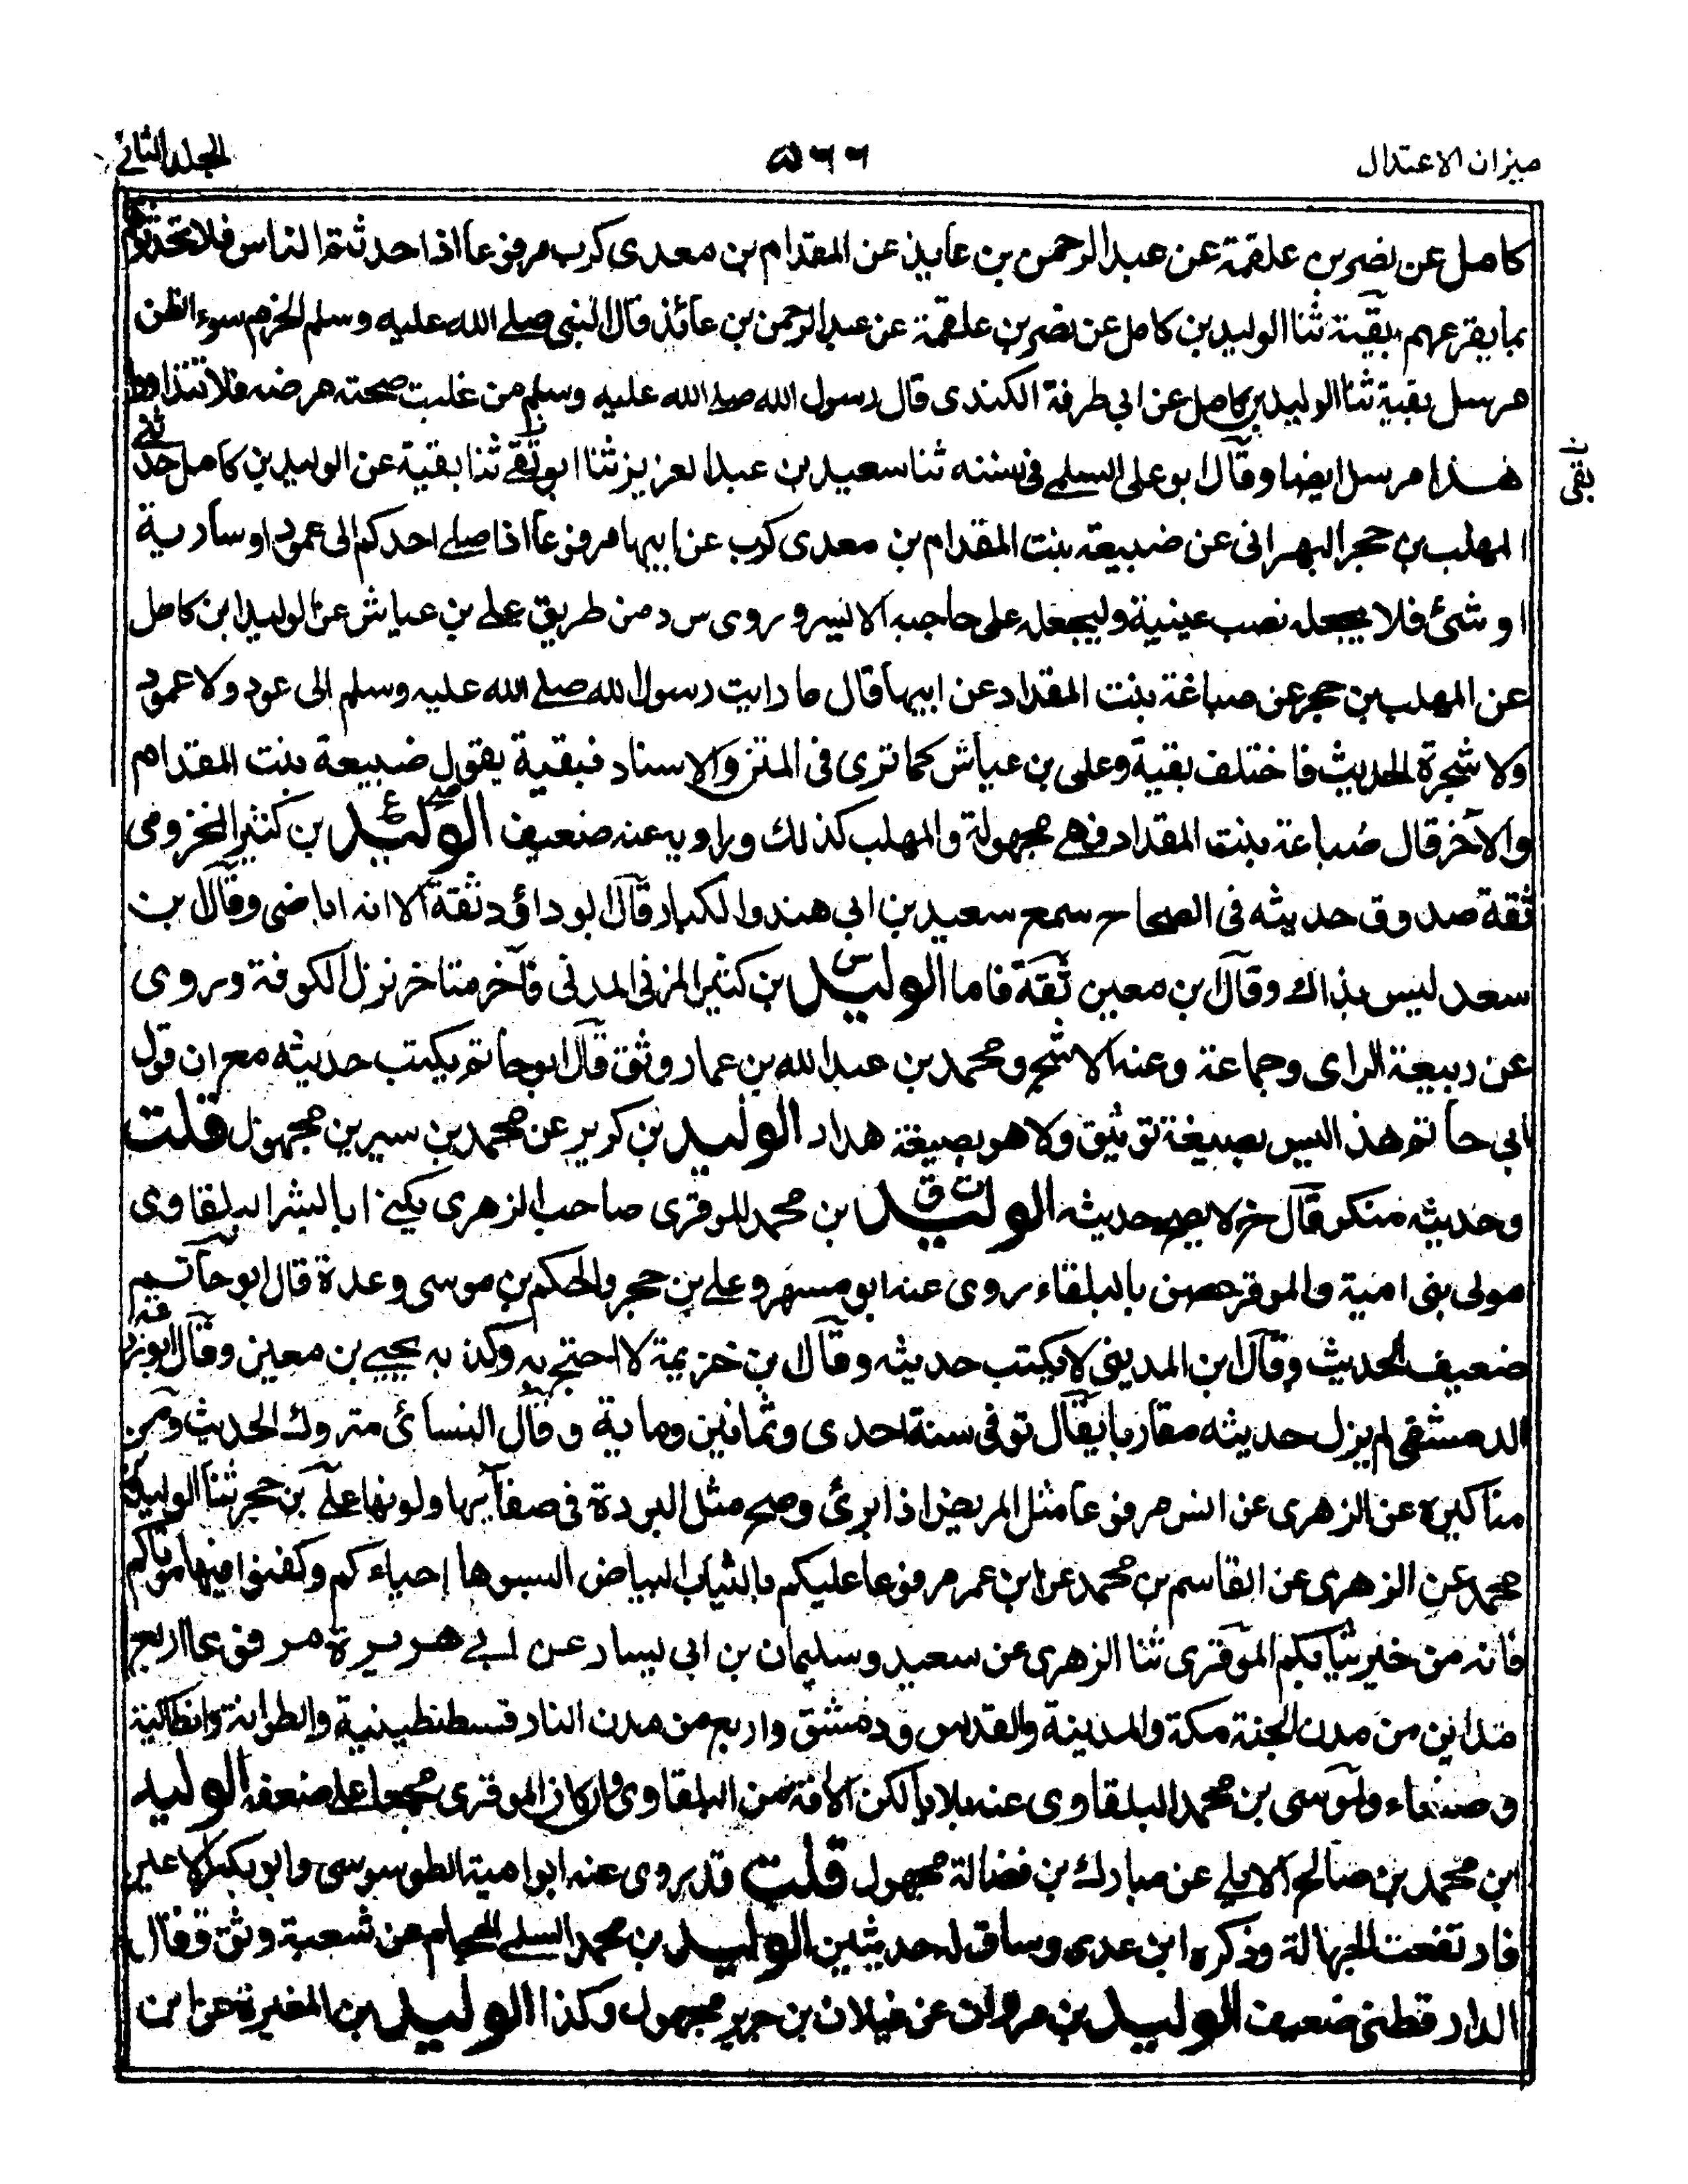 ميزان الاعتدال
٥٦٦
الجلد الثاني
كامل عن نصر بن علقمة عن عبد الرحمن بن عايذ عن المقدام بن معدى كرب مرفوعا اذا حدثتم الناس فلا تحدثوهم
بما يفزعهم بقية ثنا الوليد بن كامل عن نصر بن علقمة عن عبد الرحمن بن عائذ قال النبى صلے الله عليه وسلم الحزم سوء الظن
مرسل بقية ثنا الوليد بن كامل عن ابي طرفة الكندى قال رسول الله صلے الله عليه وسلم من غلبت صحته مرضه فلا تتداووا
هذا مرسل ايضا وقال ابو على السلمے فى سننه ثنا سعيد بن عبد العزيز ثنا ابو تقے ثنا بقية عن الوليد بن كامل حدثنے
تقى
المهلب بن حجر البهرانى عن ضبيعة بنت المقدام بن معدى كرب عن ابيها مرفوعا اذا صلے احدكم الى عمود او سارية
او شئ فلا يجعله نصب عينية وليجعله على حاجبه الايسر وروى س د من طريق علے بن عياش عن الوليد ابن كامل
عن المهلب بن حجر عن ضباغة بنت المقداد عن ابيها قال ما رايت رسول الله صلے الله عليه وسلم الى عود ولا عمود
ولا شجرة الحديث فاختلف بقية وعلى بن عياش كما ترى فى المتن والاسناد فبقية يقول ضبيعة بنت المقدام
والآخر قال ضباعة بنت المقداد فهے مجهولة والمهلب كذلك وراويه عنه ضعيف الوليد ع بن كثير المخزومى
ثقة صدوق حديثه فى الصحاح سمع سعيد بن ابى هند والكبار قال ابو داؤد ثقة الا انه اباضى وقال بن
سعد ليس بذاك وقال ابن معين ثقة فاما الوليد س بن كثير المزنى المدنى فآخر متاخر نزل الكوفة وروى
عن ربيعة الراى وجماعة وعنه الاشج ومحمد بن عبد الله بن عمار وثق قال ابو حاتم يكتب حديثه مع ان قول
ابى حاتم هذا ليس بصيغة توثيق ولا هو بصيغة هدار الوليد بن كرير عن محمد بن سيرين مجهول قلت
وحديثه منكر قال خ لا يصح حديثه الوليد ت ق بن محمد الموقرى صاحب الزهرى يكنے ابا البشر البلقاوى
مولى بنى امية والموقر حصن بالبلقاء روى عنه ابو مسهر وعلے بن حجر والحكم بن موسى وعدة قال ابو حاتم
ضعيف الحديث وقال ابن المدينى لا يكتب حديثه وقال بن خزيمة لا احتج به وكذبه يحيے بن معين وقال ابو زرعة
الدمشقى لم يزل حديثه مقاربا يقال توفى سنة احدى وثمانين وماية وقال النسائى متروك الحديث ومن
مناكيره عن الزهرى عن انس مرفوعا مثل المريض اذا برئ وصح مثل البردة فى صفآئها ولونها علے بن حجر ثنا الوليد بن
محمد عن الزهرى عن القاسم بن محمد عن ابن عمر مرفوعا عليكم بالثياب البياض البسوها احياءكم وكفنوا فيها موتاكم
فانه من خير ثيابكم الموقرى ثنا الزهرى عن سعيد وسليمان بن ابى يسار عن ابے هريرة مرفوعا اربع
مداين من مدن الجنة مكة والمدينة والقدس ودمشق واربع من مدن النار قسطنطينية والطوانة وانطاكية
وصنعاء ولموسى بن محمد البلقاوى عنه بلايا لكن الافة من البلقاوى وان كان الموقرى مجمعا على ضعفه الوليد
ابن محمد بن صالح الايلے عن مبارك بن فضالة مجهول قلت قد روى عنه ابو امية الطوسوسى وابو بكير الاعين
فارتفعت الجهالة وذكره ابن عدى وساق له حديثين الوليد بن محمد السلے الحجام عن شعبة وثق وقال
الدارقطنى ضعيف الوليد بن مروان عن غيلان بن جرير مجهول وكذا الوليد بن المغيرة عن ابن